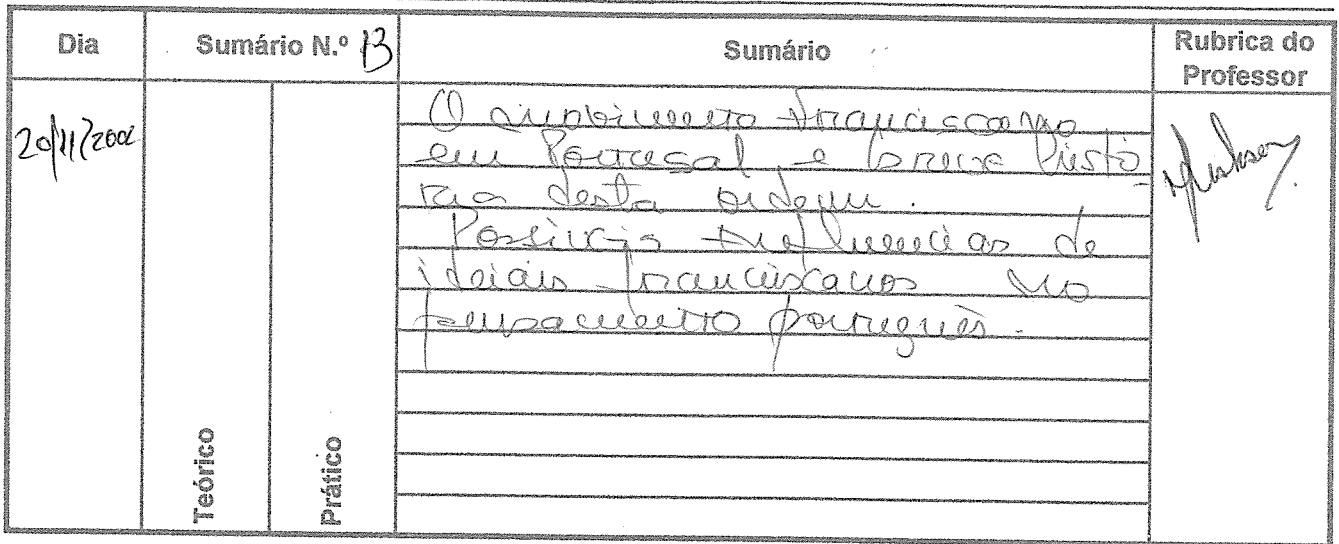 Dia Sumário N.º 13 Sumário Rubrica do Professor
20/11/200
O movimento franciscano
em Portugal e breve histó-
ria desta ordem.
Possíveis influências de
ideais franciscanos no
pensamento português.
Teórico
Prático